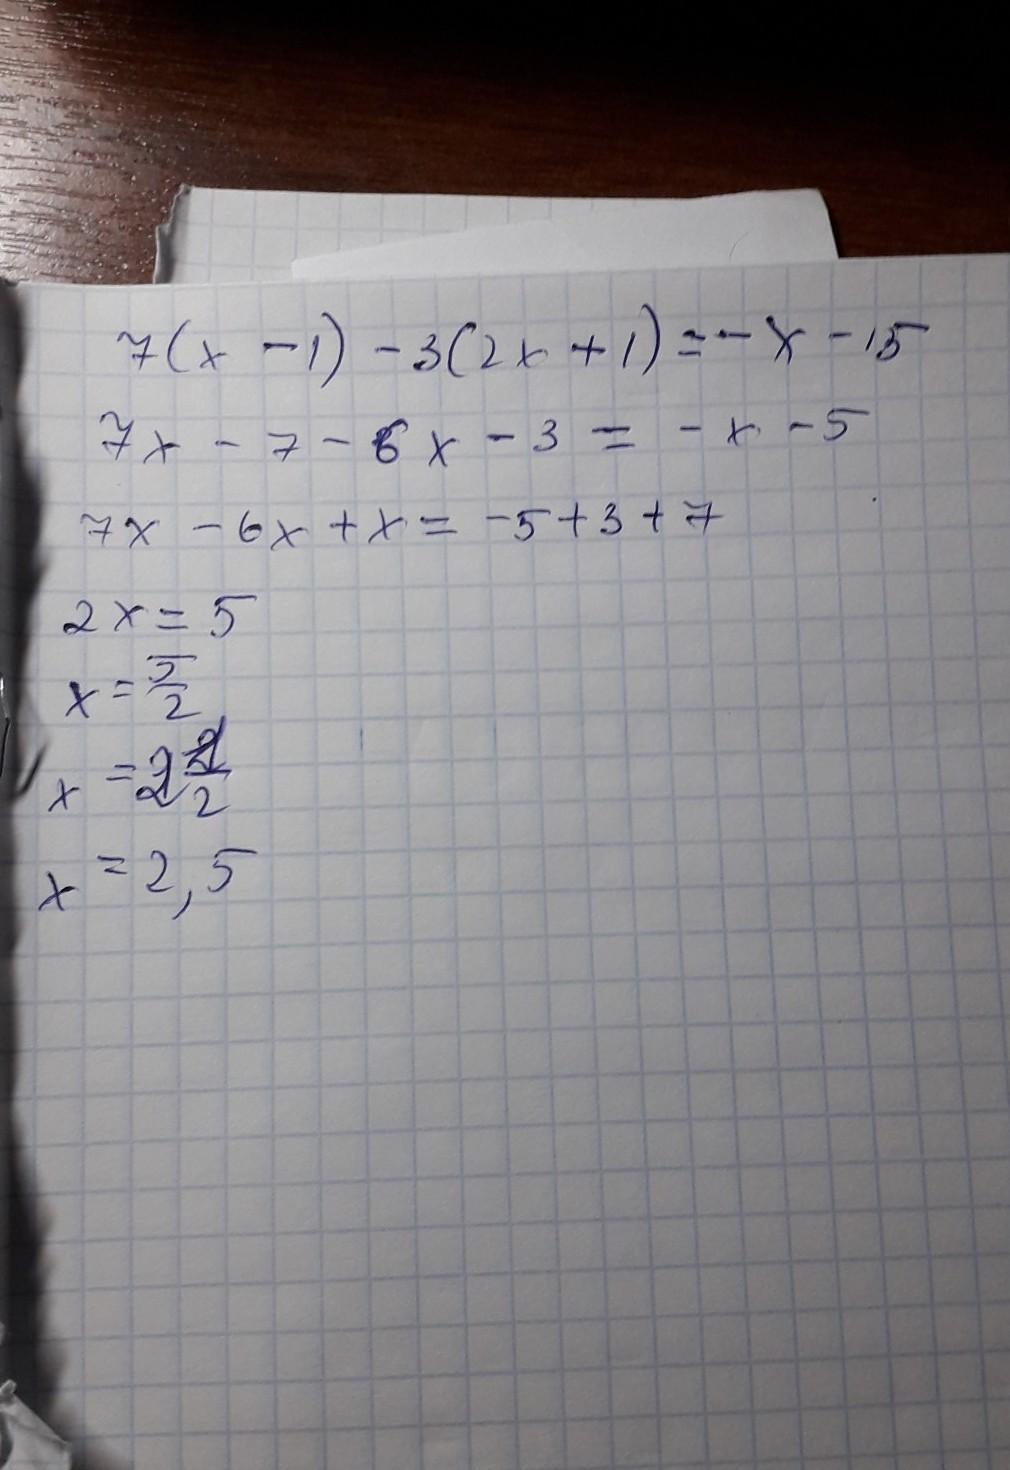 7(x - 1) - 3(2x + 1) = - x - 15
7x - 7 - 6x - 3 = - x - 5
7x - 6x + x = -5 + 3 + 7
2x = 5
x = 5/2
x = 2 1/2
x = 2,5